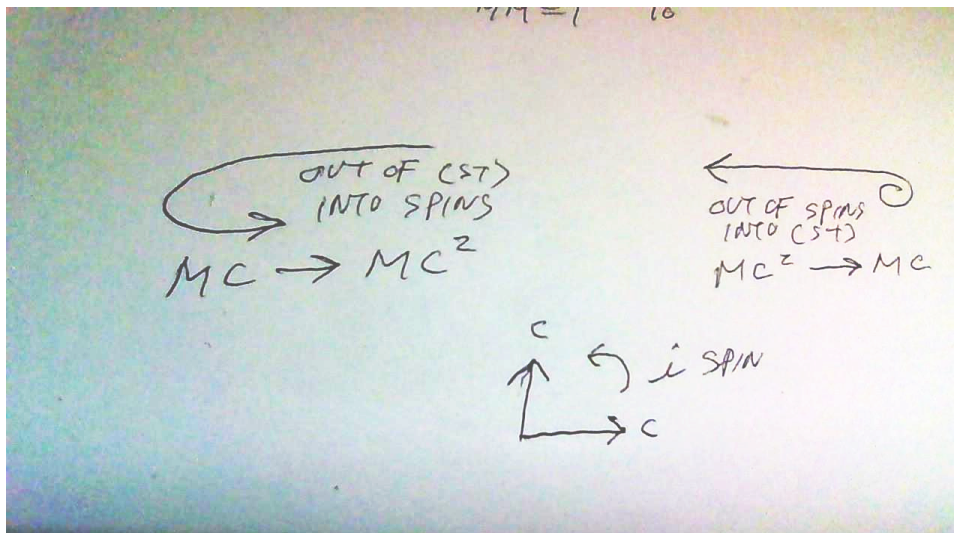 OUT OF (ST)
INTO SPINS
MC → MC²
OUT OF SPINS
INTO (ST)
MC² → MC
C
i SPIN
C